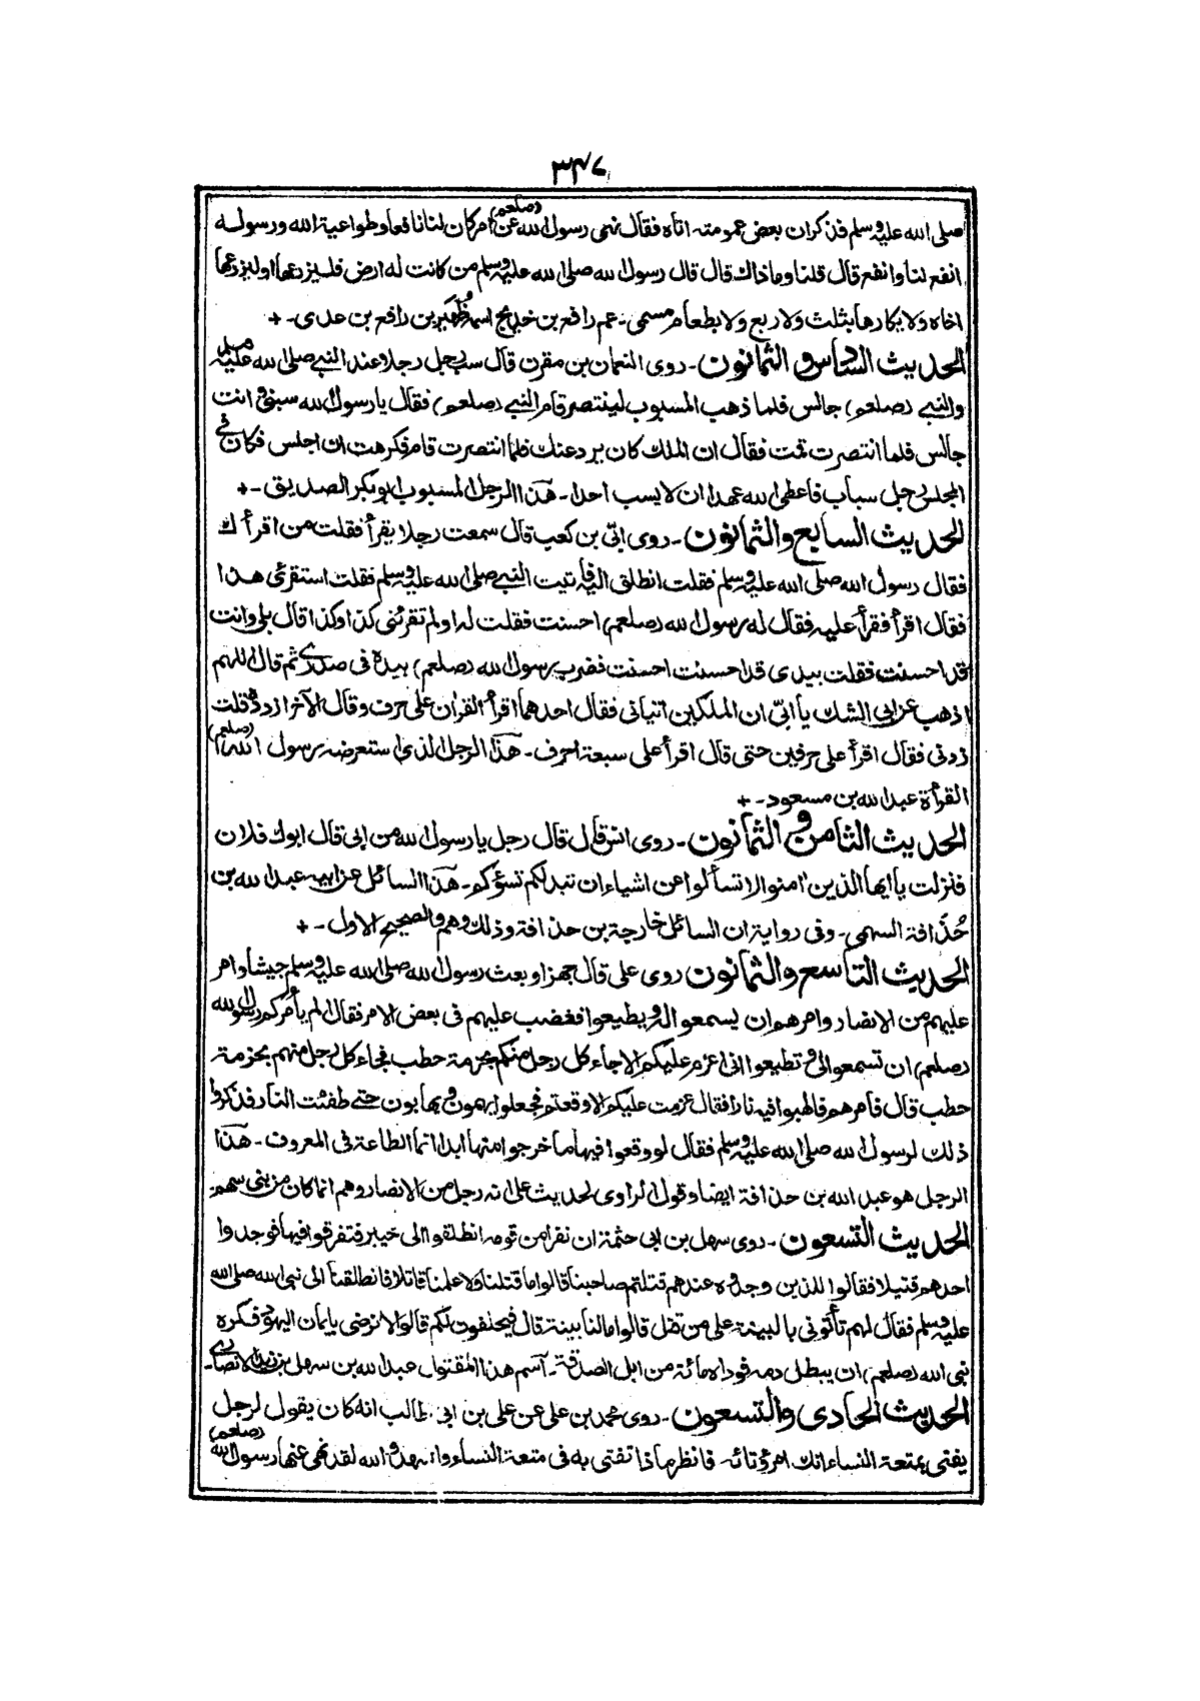 ٣٤٧
صلى الله عليه وسلم فذكر ان بعض عمومته اتاه فقال نهى رسول الله (صلعم) عن امر كان لنا نافعا وطواعية الله ورسوله
انفع لنا وانفع قال قلنا وما ذاك قال قال رسول الله صلى الله عليه وسلم من كانت له ارض فليزرعها او ليزرعها
اخاه ولا يكارها بثلث ولا ربع ولا بطعام مسمى - عم رافع بن خديج اسمه ظُهَير بن رافع بن عدى - +
الحديث السادس و الثمانون - روى النعمان بن مقرن قال سب رجل رجلا عند النبي صلى الله عليه وسلم
والنبي (صلعم) جالس فلما ذهب المسبوب لينتصر قام النبي (صلعم) فقال يا رسول الله سبنى وانت
جالس فلما انتصرت قمت فقال ان الملك كان يرد عنك فلما انتصرت قام فكرهت ان اجلس فكان فى
المجلس رجل سباب فاعطى الله عهدا ان لا يسب احدا - هذا الرجل المسبوب ابو بكر الصديق - +
الحديث السابع والثمانون - روى ابىّ بن كعب قال سمعت رجلا يقرأ فقلت من اقرأك
فقال رسول الله صلى الله عليه وسلم فقلت انطلق اليه فاتيت النبي صلى الله عليه وسلم فقلت استقرئ هذا
فقال اقرأ فقرأ عليه فقال له رسول الله (صلعم) احسنت فقلت له اولم تقرئنى كذا وكذا قال بلى وانت
قد احسنت فقلت بيدى قد احسنت احسنت فضرب رسول الله (صلعم) بيده فى صدرى ثم قال اللهم
اذهب عن ابى الشك يا ابىّ ان الملكين اتيانى فقال احدهما اقرأ القران على حرف وقال الآخر زده قلت
زدنى فقال اقرأ على حرفين حتى قال اقرأ على سبعة احرف - هذا الرجل الذى استعرضه رسول الله (صلعم)
القرأة عبد الله بن مسعود - +
الحديث الثامن و الثمانون - روى انس قال قال رجل يا رسول الله من ابى قال ابوك فلان
فنزلت يا ايها الذين امنوا لا تسألوا عن اشياء ان تبد لكم تسؤكم - هذا السائل عن ابيه عبد الله بن
حُذافة السهمى - وفى رواية ان السائل خارجة بن حذافة وذلك وهم والصحيح الاول - +
الحديث التاسع والثمانون روى على قال جهز او بعث رسول الله صلى الله عليه وسلم جيشا وامر
عليهم من الانصار وامرهم ان يسمعوا له ويطيعوا فغضب عليهم فى بعض الامر فقال الم يأمركم رسول الله
(صلعم) ان تسمعوا لى و تطيعوا انى اعزم عليكم الا جاء كل رجل منكم بحزمة حطب فجاء كل رجل منهم بحزمة
حطب قال فامرهم فالهبوا فيه نارا فقال عزمت عليكم الا وقعتم فجعلوا يهمون و يهابون حتى طفئت النار فذكروا
ذلك لرسول الله صلى الله عليه وسلم فقال لو وقعوا فيها ما خرجوا منها ابدا انما الطاعة فى المعروف - هذا
الرجل هو عبد الله بن حذافة ايضا وقول الراوى لحديث على انه رجل من الانصار وهم انما كان من بنى سهم
الحديث التسعون - روى سهل بن ابى حثمة ان نفرا من قومه انطلقوا الى خيبر فتفرقوا فيها فوجدوا
احدهم قتيلا فقالوا للذين وجدوه عندهم قتلتم صاحبنا قالوا ما قتلنا ولا علمنا قاتلا فانطلقنا الى نبى الله صلى الله
عليه وسلم فقال لهم تأتونى بالبينة على من قتل قالوا ما لنا بينة قال فيحلفون لكم قالوا لا نرضى بايمان اليهود فكره
نبى الله (صلعم) ان يبطل دمه فوداه مائة من ابل الصدقة - آسم هذا المقتول عبد الله بن سهل بن زيد الانصارى -
الحديث الحادى والتسعون - روى محمد بن على عن على بن ابى طالب انه كان يقول لرجل
يفتى بمتعة النساء انك امرؤ تائه فانظر ماذا تفتى به فى متعة النساء والله لقد نهى عنها رسول الله (صلعم)